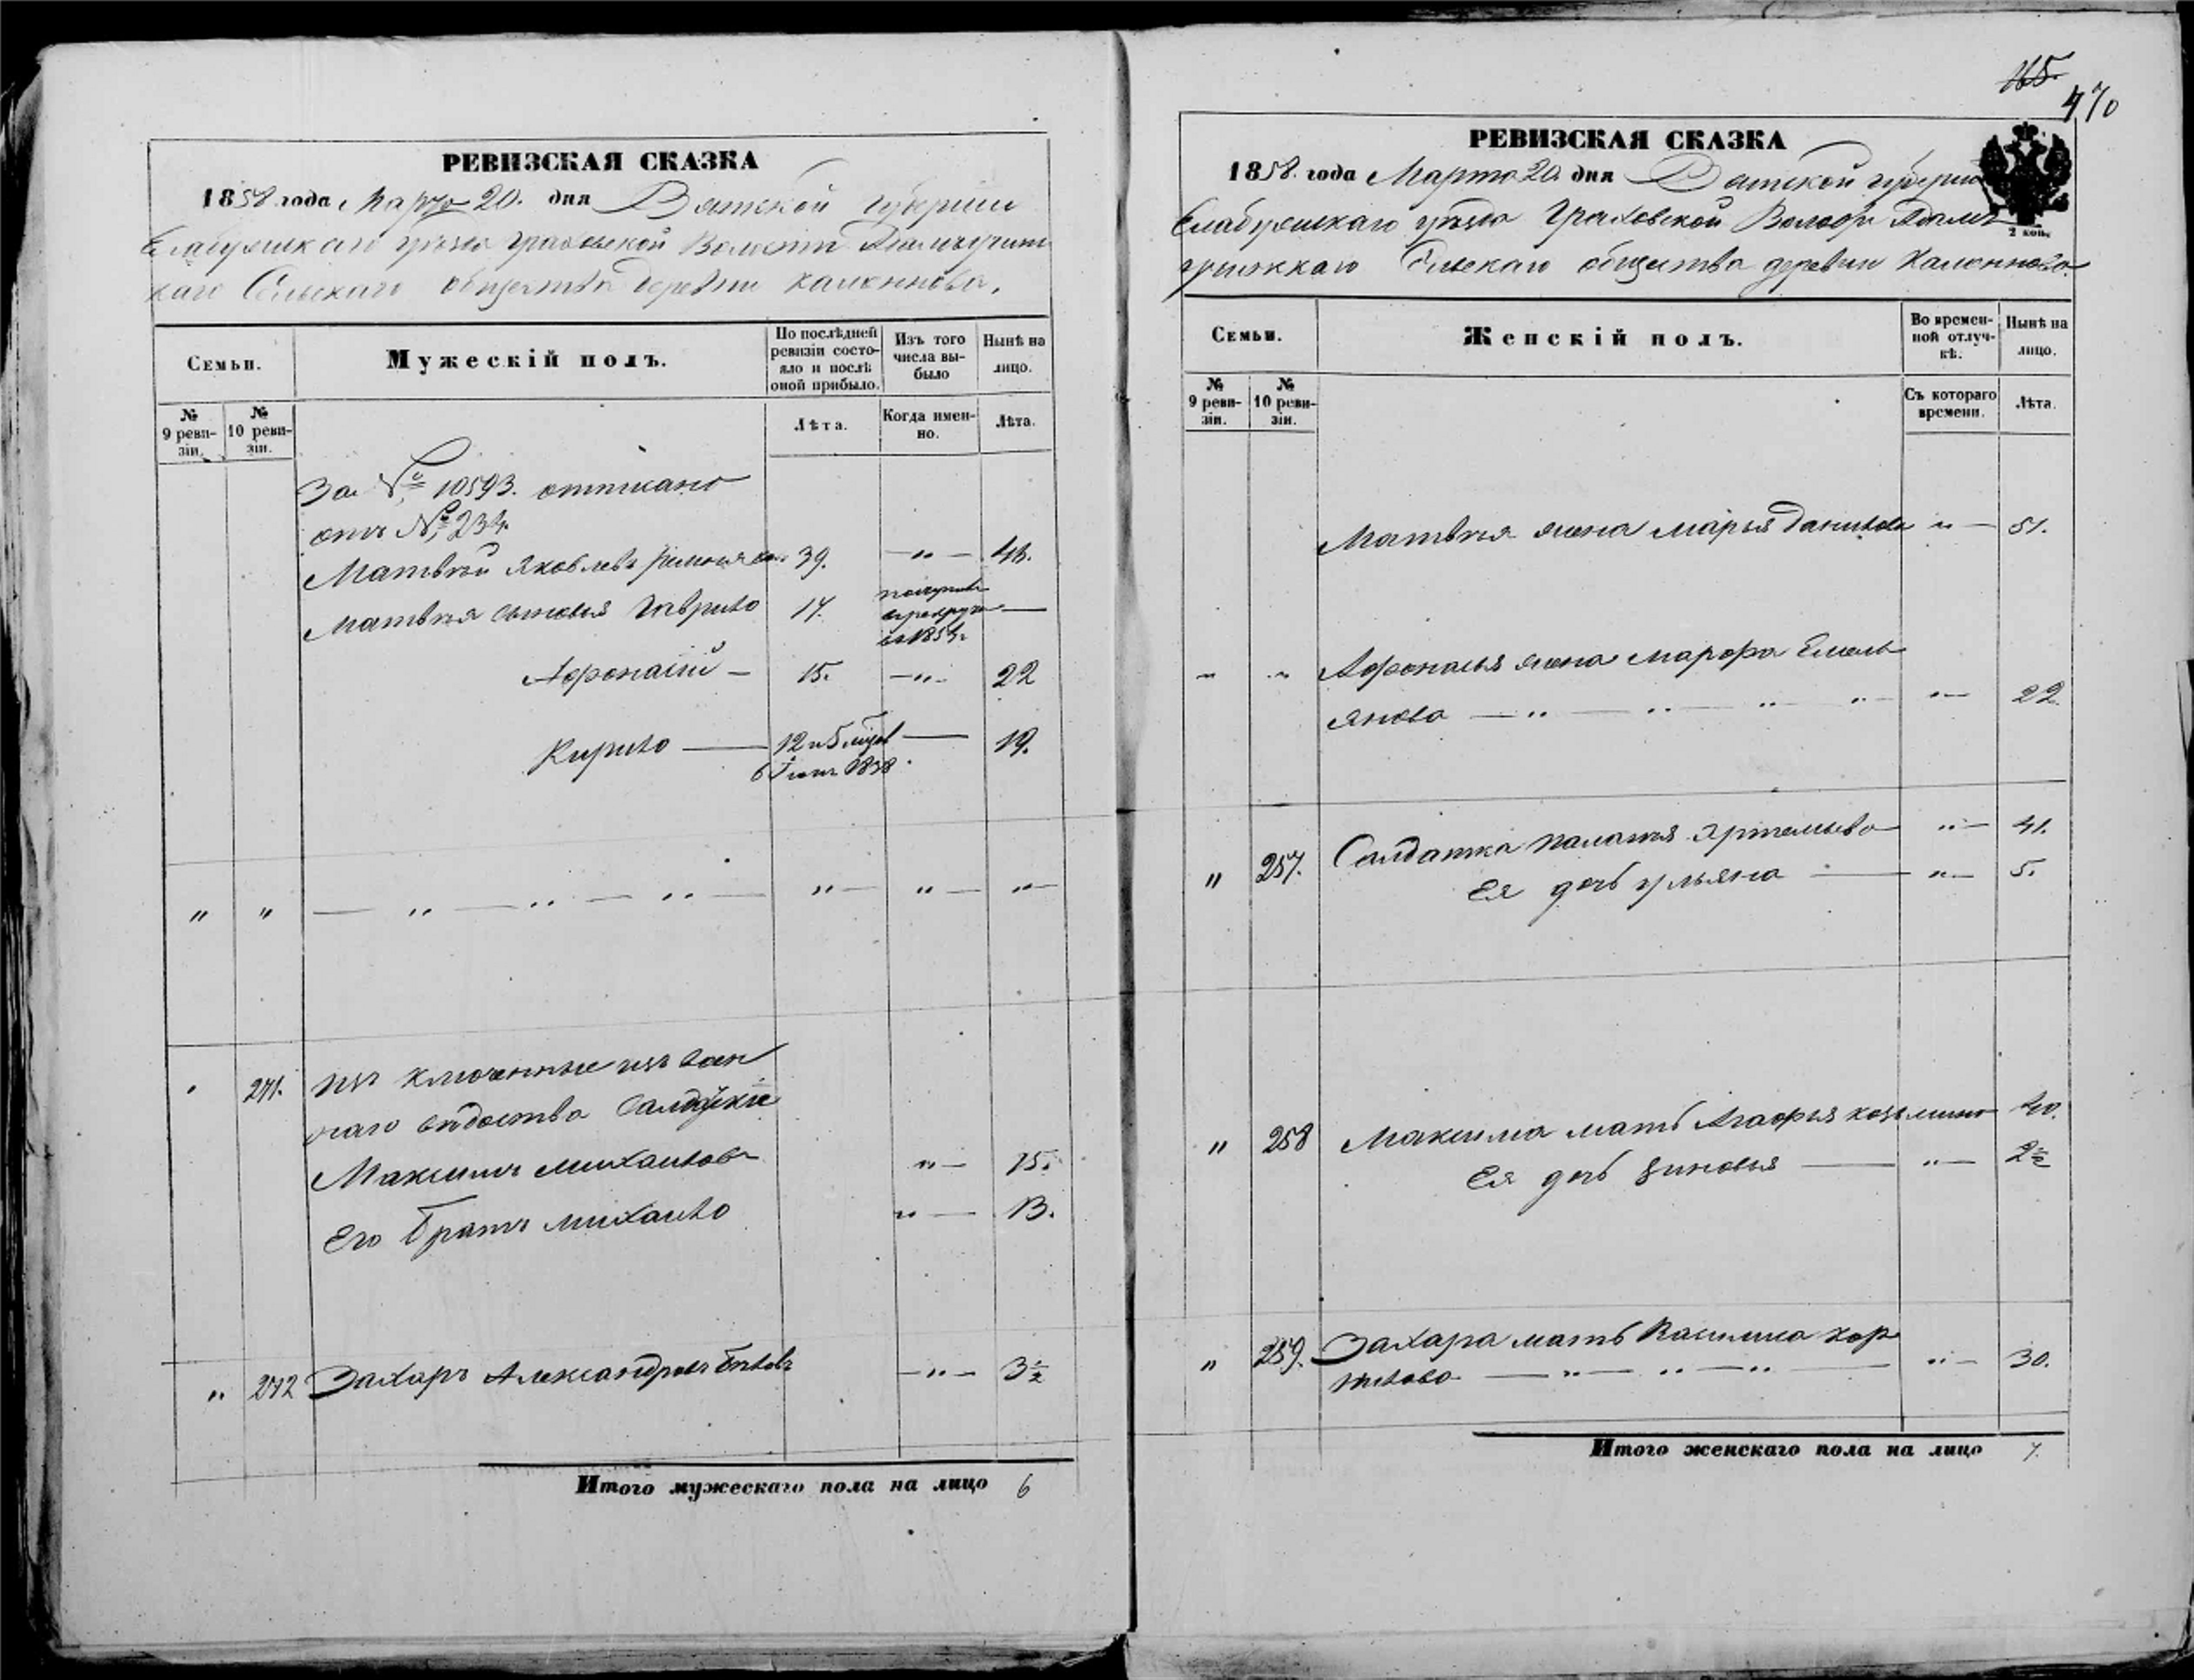 РЕВИЗСКАЯ СКАЗКА
1858 года Марта 20. дня Вятской губерніи
Елабужскаго уѣзда Граховской Волости
каго Сельскаго общества деревни
Семьи.
Мужескій полъ.
По послѣдней ревизіи состояло и послѣ оной прибыло.
Изъ того числа выбыло
Нынѣ на лицо.
№ 9 ревизіи.
№ 10 ревизіи.
Лѣта.
Когда именно.
Лѣта.
За № 10593. отписано
отъ № 234.
Матвѣй Яковлевъ 39. — " —
Матвѣя сыновья Гаврило 17.
въ 1854
Афонасій — 15. — " — 22
Кирило — 12 и 5 — 19.
" " — " — " — " — " — " — " —
" 271.
Максимъ Михаиловъ " — 15.
Его братъ Михаило " — 13.
" 272 Захаръ Александровъ — " — 3½
Итого мужескаго пола на лицо 6
165.
470
РЕВИЗСКАЯ СКАЗКА
1858. года Марта 20. дня Вятской губерніи
2 коп.
Елабужскаго уѣзда Граховской
Сельскаго общества деревни
Семьи.
Женскій полъ.
Во временной отлучкѣ.
Нынѣ на лицо.
№ 9 ревизіи.
№ 10 ревизіи.
Съ котораго времени.
Лѣта.
Матвѣя жена Марья Данилова " — 51.
" " Афонасья жена Марфа Емель
янова — " — " — " — " — " — 22.
" 257. Солдатка Палагья Артемьева " — 41.
Ея дочь Ульяна — " — 5.
" 258 Максима мать Агафья Козьмина 40.
Ея дочь Зиновья — " — 2½
" 259. Захара мать Василиса Кор
нилова — " — " — " — " — 30.
Итого женскаго пола на лицо 7.